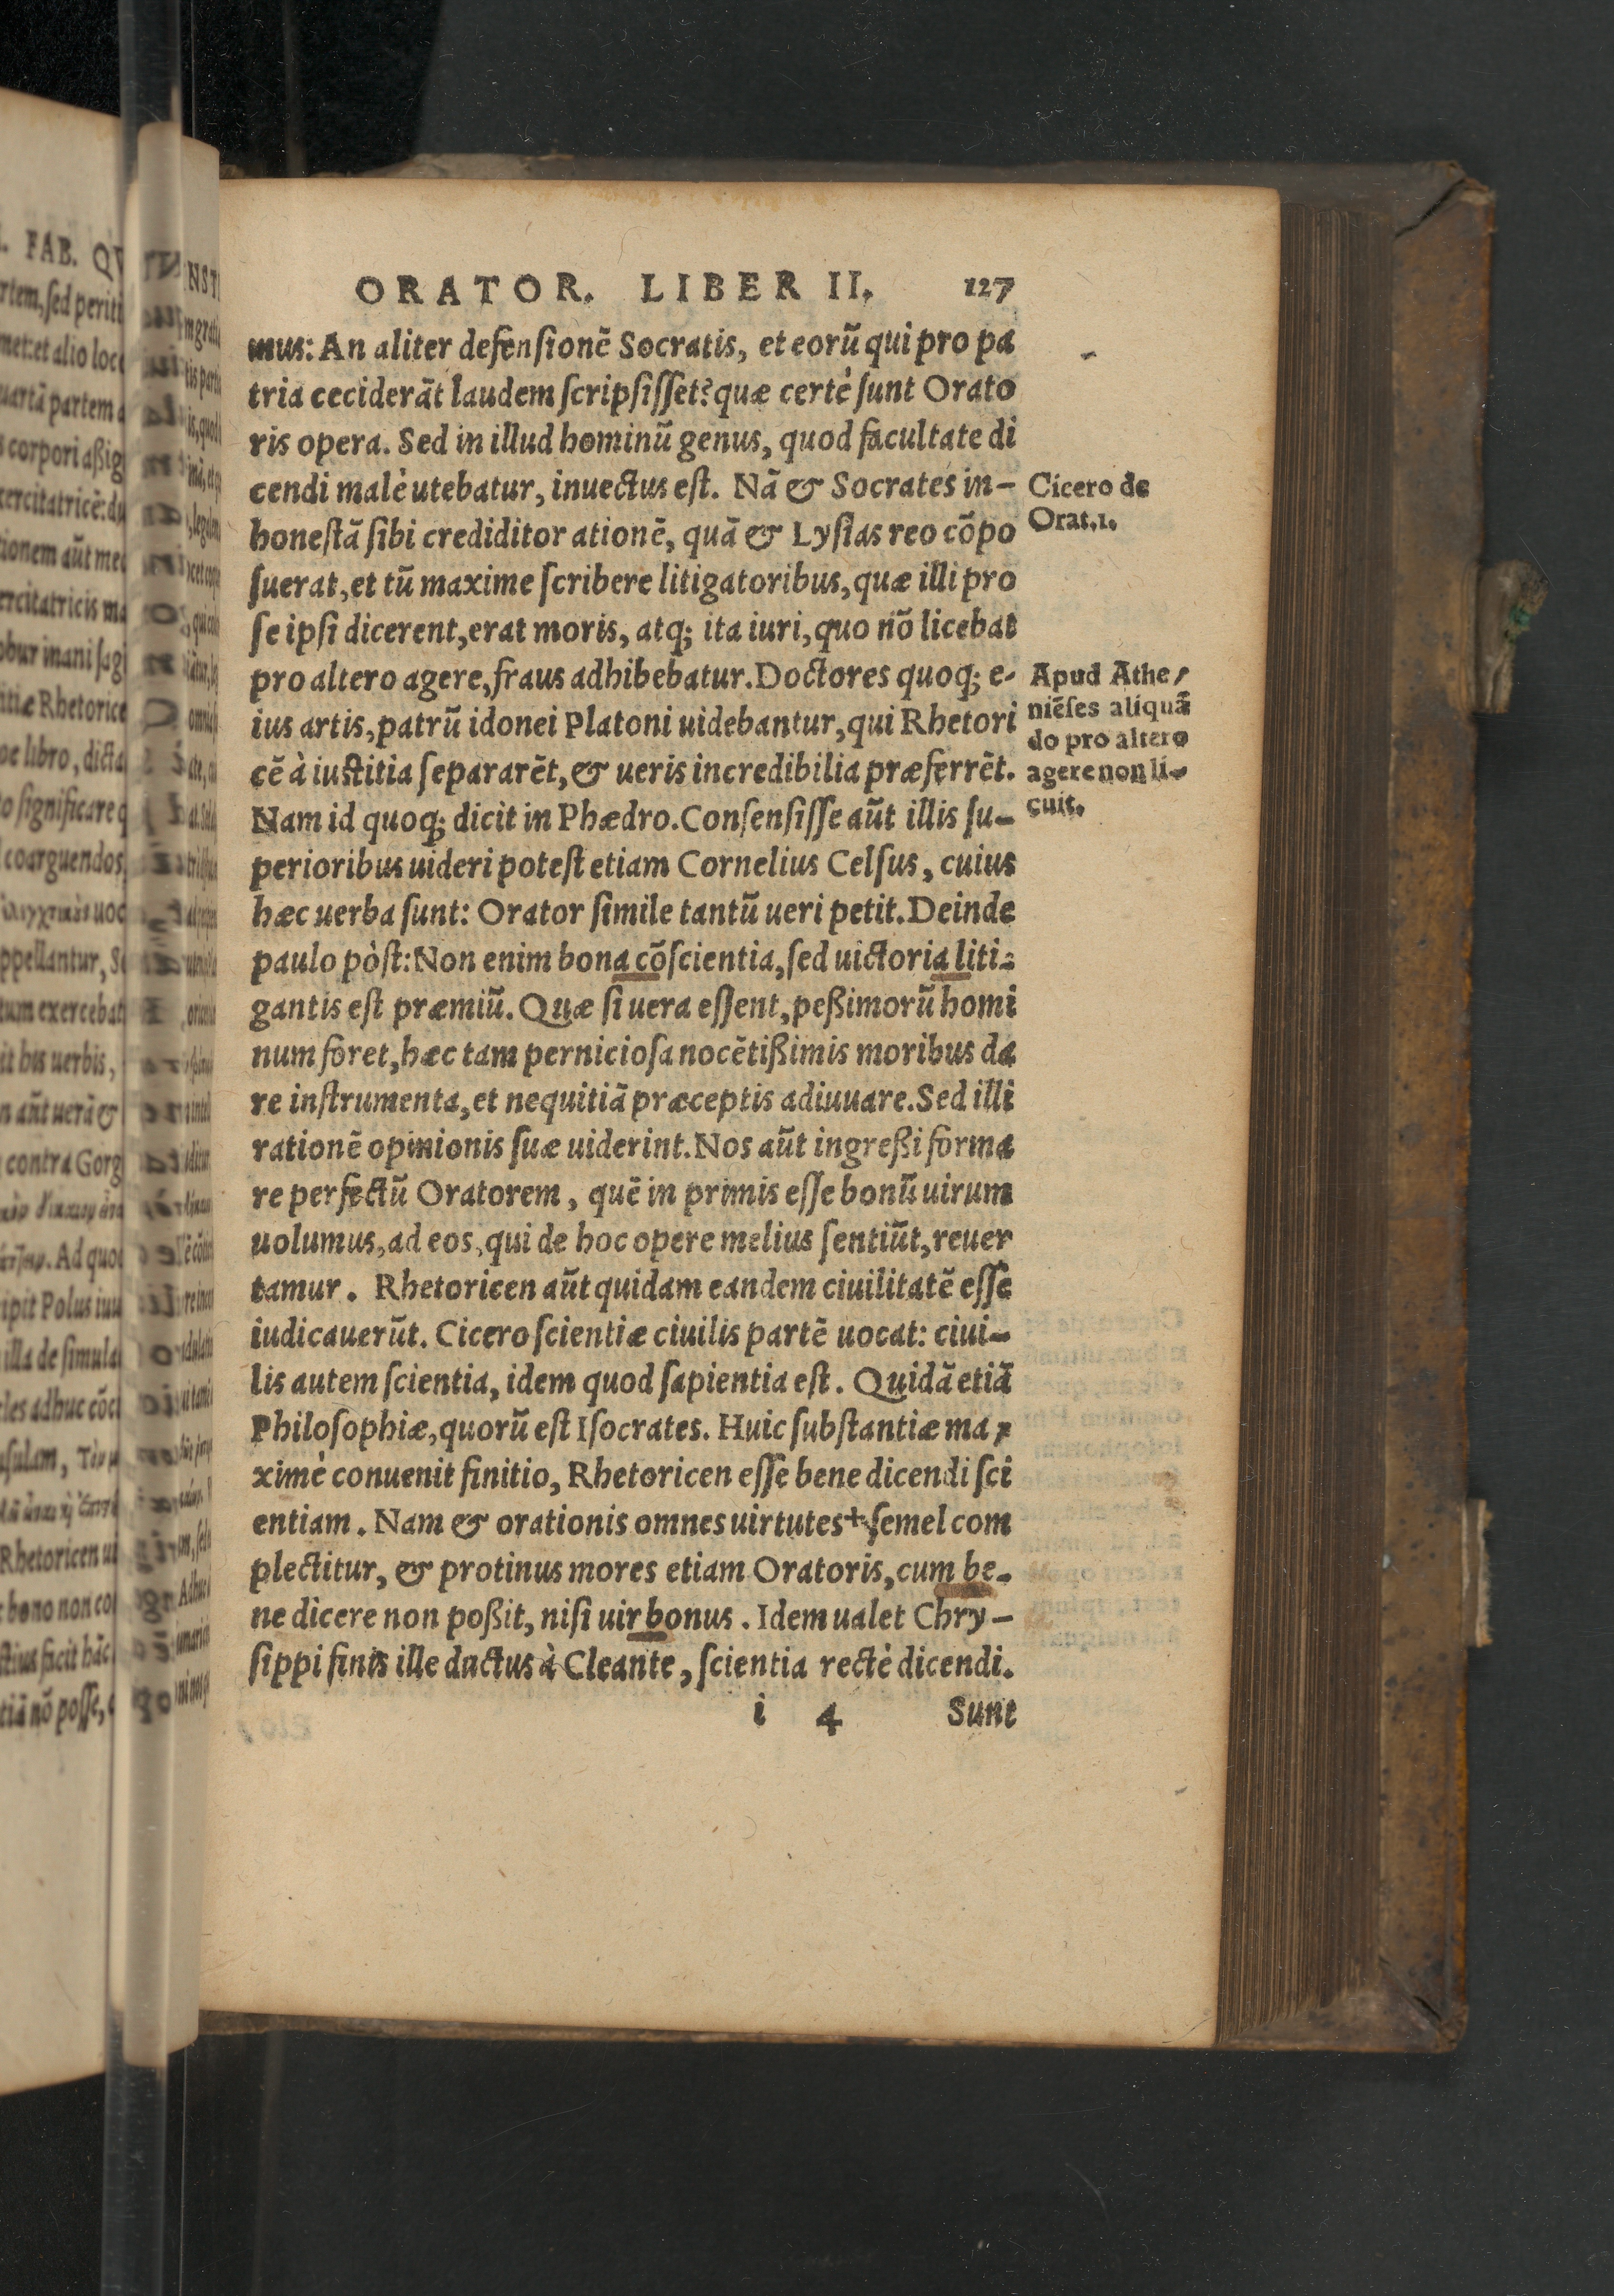 ORATOR. LIBER II. 127
mus: An aliter defensionē Socratis, et eorū qui pro pa
tria ceciderāt laudem scripsisset? quæ certè sunt Orato
ris opera. Sed in illud hominū genus, quod facultate di
cendi malè utebatur, inuectus est. Nā & Socrates in-
honestā sibi crediditor ationē, quā & Lysias reo cōpo
suerat, et tū maxime scribere litigatoribus, quæ illi pro
se ipsi dicerent, erat moris, atq; ita iuri, quo nō licebat
pro altero agere, fraus adhibebatur. Doctores quoq; e-
ius artis, patrū idonei Platoni uidebantur, qui Rhetori
cē à iustitia separarēt, & ueris incredibilia præferrēt.
Nam id quoq; dicit in Phædro. Consensisse aūt illis su-
perioribus uideri potest etiam Cornelius Celsus, cuius
hæc uerba sunt: Orator simile tantū ueri petit. Deinde
paulo pòst: Non enim bona cōscientia, sed uictoria liti-
gantis est præmiū. Quæ si uera essent, peßimorū homi
num foret, hæc tam perniciosa nocētißimis moribus da
re instrumenta, et nequitiā præceptis adiuuare. Sed illi
rationē opinionis suæ uiderint. Nos aūt ingreßi forma
re perfectū Oratorem, quē in primis esse bonū uirum
uolumus, ad eos, qui de hoc opere melius sentiūt, reuer
tamur. Rhetoricen aūt quidam eandem ciuilitatē esse
iudicauerūt. Cicero scientiæ ciuilis partē uocat: ciui-
lis autem scientia, idem quod sapientia est. Quidā etiā
Philosophiæ, quorū est Isocrates. Huic substantiæ ma-
ximè conuenit finitio, Rhetoricen esse bene dicendi sci
entiam. Nam & orationis omnes uirtutes + semel com
plectitur, & protinus mores etiam Oratoris, cum be-
ne dicere non poßit, nisi uir bonus. Idem ualet Chry-
sippi finis ille ductus à Cleante, scientia rectè dicendi.
i 4 Sunt
Cicero de
Orat.1.
Apud Athe-
niēses aliquā
do pro altero
agere non li-
cuit.